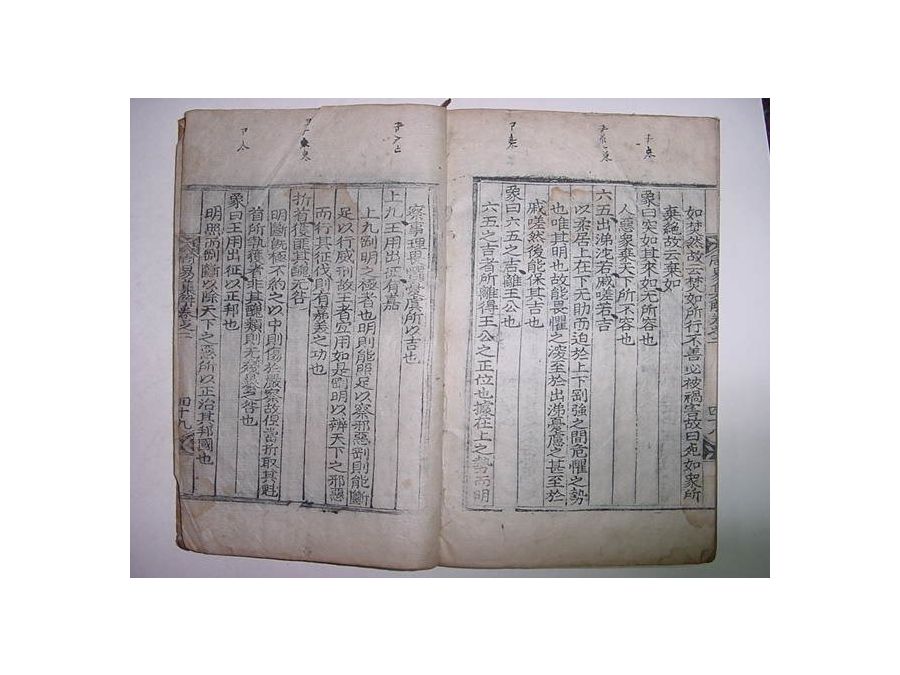 如焚然故云焚如所行不善必被禍害故曰死如衆所
棄絶故云棄如
象曰突如其來如无所容也
人惡衆棄天下所不容也
六五出涕沱若戚嗟若吉
以柔居上在下无助而迫於上下剛強之間危懼之勢
也唯其明也故能畏懼之深至於出涕憂慮之甚至於
戚嗟然後能保其吉也
象曰六五之吉離王公也
六五之吉者所離得王公之正位也據在上之勢而明
四十八
察事理畏懼憂虞所以吉也
上九王用出征有嘉
上九剛明之極者也明則能照足以察邪惡剛則能斷
足以行威刑故王者宜用如是剛明以辨天下之邪惡
而行其征伐則有嘉美之功也
折首獲匪其醜无咎
明斷旣極不約之以中則傷於嚴察故但當折取其魁
首所執獲者非其醜類則无殘暴之咎也
象曰王用出征以正邦也
明照而剛斷以除天下之惡所以正治其邦國也
周易集解卷之二
四十九